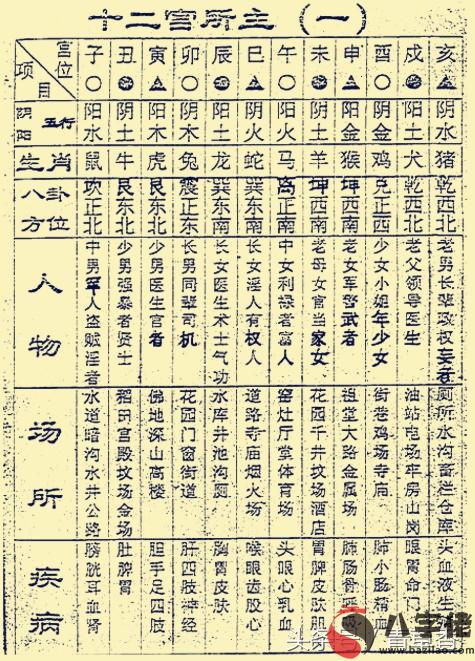 十二宫所主（一）
宫位 项目 子 丑 寅 卯 辰 巳 午 未 申 酉 戌 亥
阴阳五行 阳水 阴土 阳木 阴木 阳土 阴火 阳火 阴土 阳金 阴金 阳土 阴水
生肖 鼠 牛 虎 兔 龙 蛇 马 羊 猴 鸡 犬 猪
八卦方位 坎正北 艮东北 艮东北 震正东 巽东南 巽东南 离正南 坤西南 坤西南 兑正西 乾西北 乾西北
人物 中男军人盗贼淫者 少男强暴者贤士 少男医生官者 长男同辈司机 长女医生术士气功 长女淫人有权人 中女利禄者富人 老母女官当家女 老女军警武者 少女小姐年少女 老父领导医生 老男长辈政权妄者
场所 水道暗沟水井公路 稻田宫殿坟场金场 佛地深山高楼 花园门窗街道 水库井池沟厕 道路寺庙烟火场 窑灶厅堂体育场 花园千井坟场酒店 祖堂大路金属场 街巷鸡场寺庙 油站电场牢房山岗 厕所水沟畜栏仓库
疾病 膀胱耳血肾 肚脾胃 胆手足四肢 肝四肢神经 胸胃皮肤 喉眼齿股心 头眼心乳血 胃脾皮肤 肺肠骨呼吸 肺小肠精血 眼胃命门 头血液生
头条
八字佬
www.bazilao.com